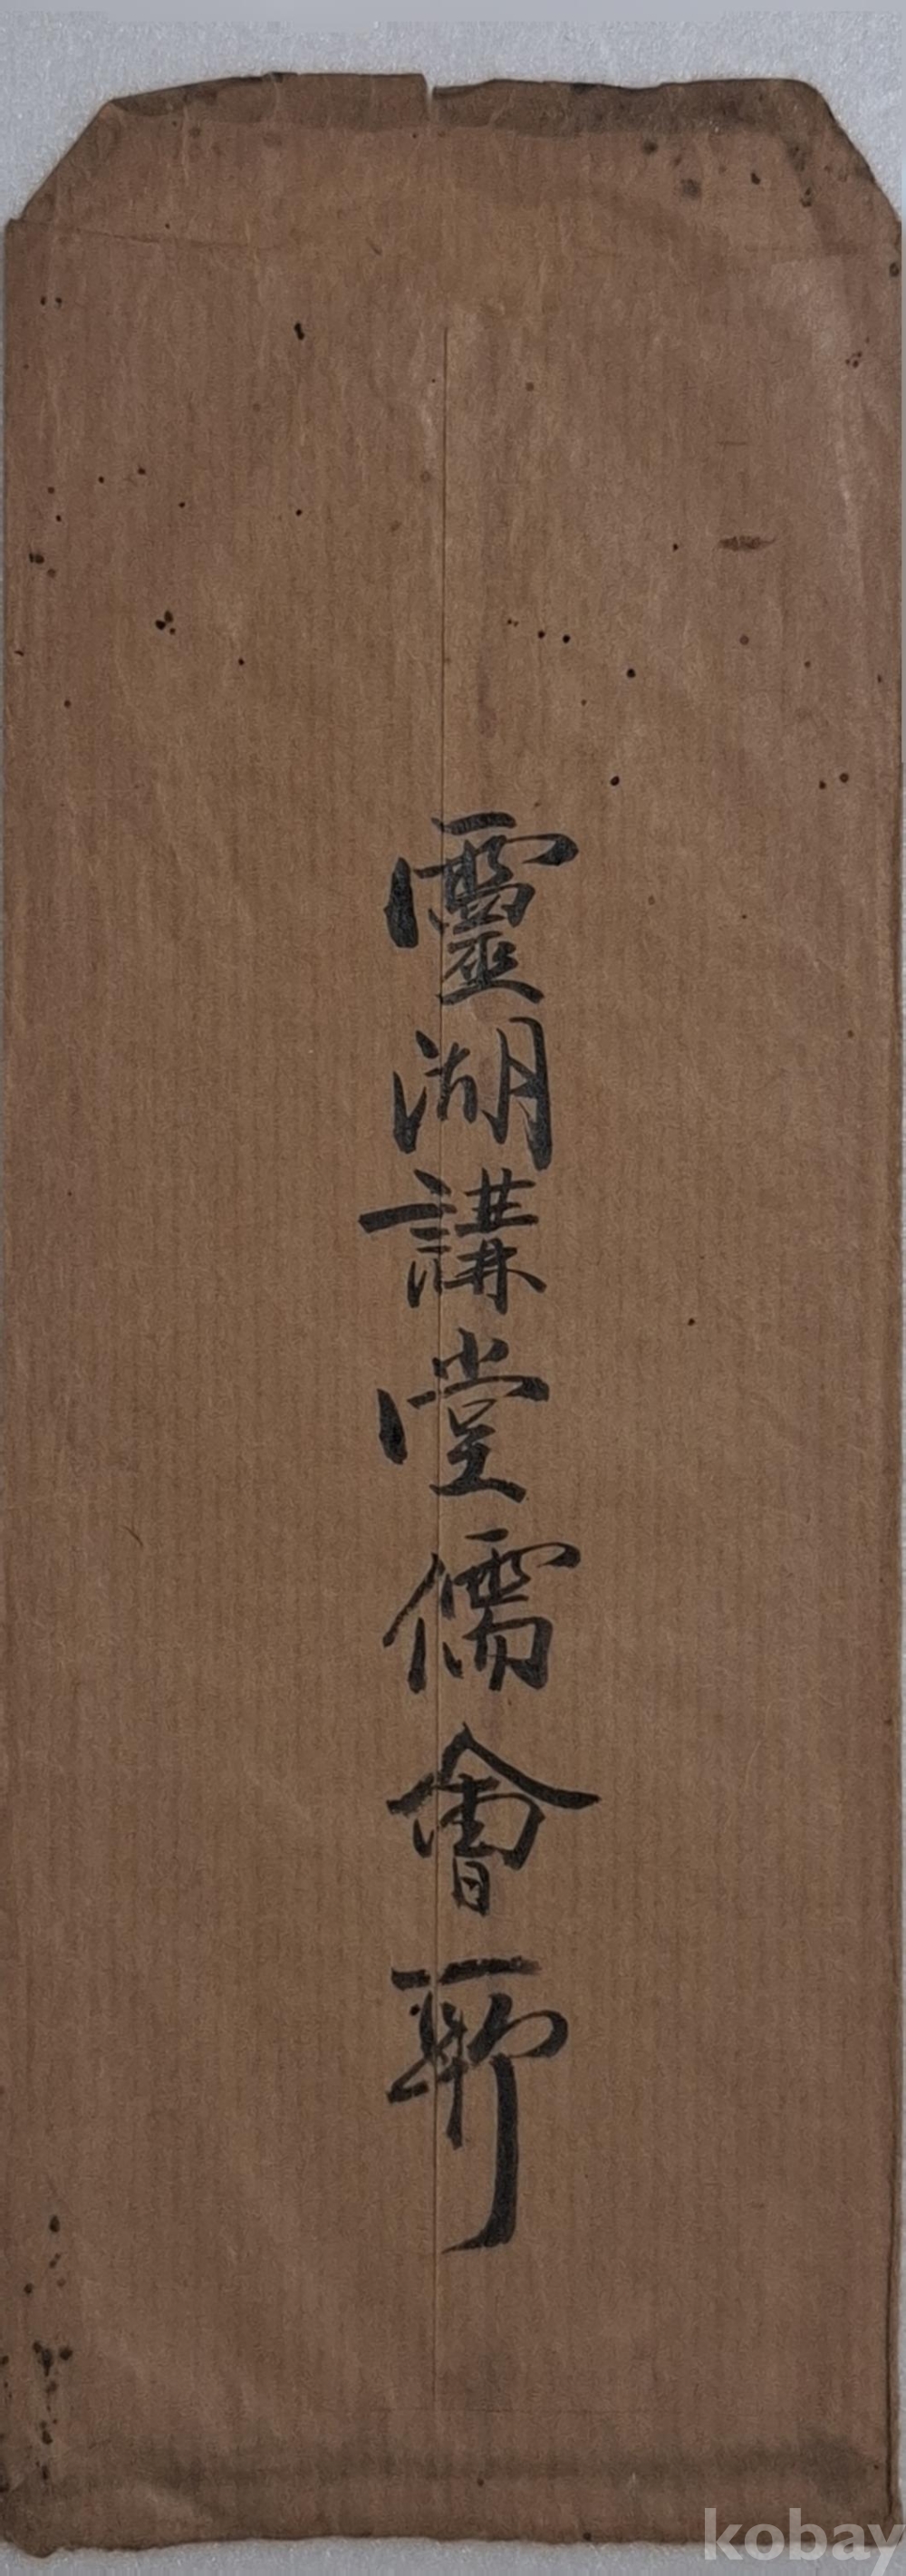 靈湖講堂儒會所
kobay